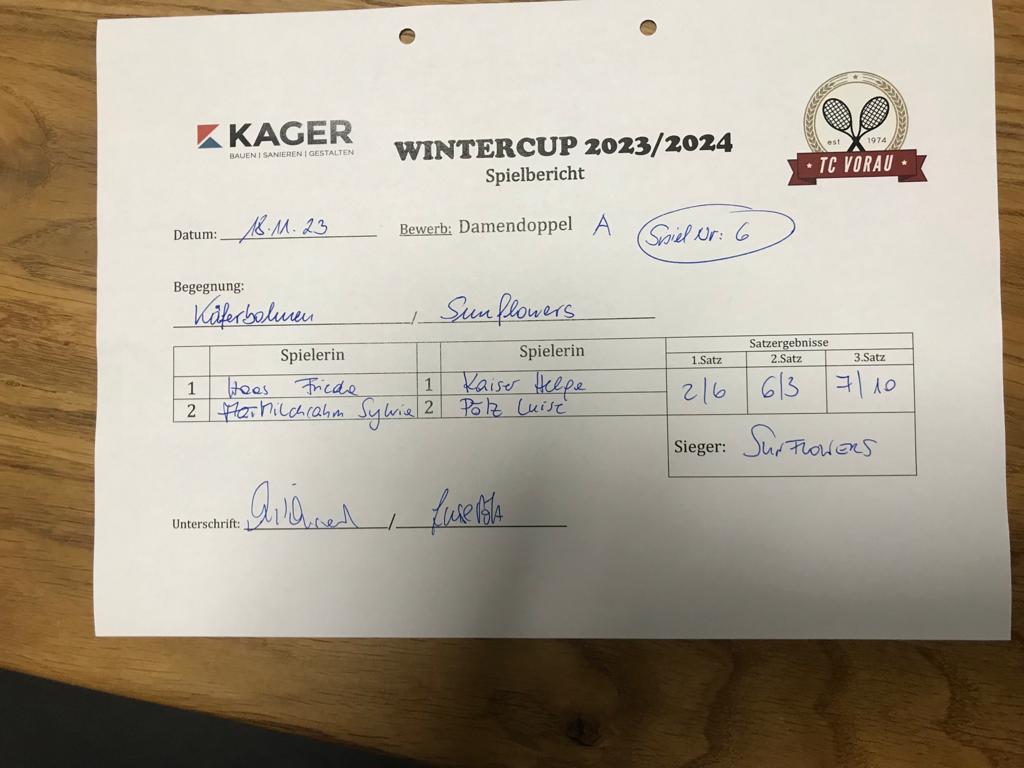 KAGER
BAUEN | SANIEREN | GESTALTEN
WINTERCUP 2023/2024
Spielbericht
est 1974
TC VORAU
Datum: 18.11.23 Bewerb: Damendoppel A Spiel Nr: 6
Begegnung:
Käferbohnen / Sunflowers
Spielerin Spielerin Satzergebnisse
1.Satz 2.Satz 3.Satz
1 Haas Friede 1 Kaiser Helga 2/6 6/3 7/10
2 Milchrahm Sylvia 2 Pötz Luise
Sieger: SUNFLOWERS
Unterschrift: /